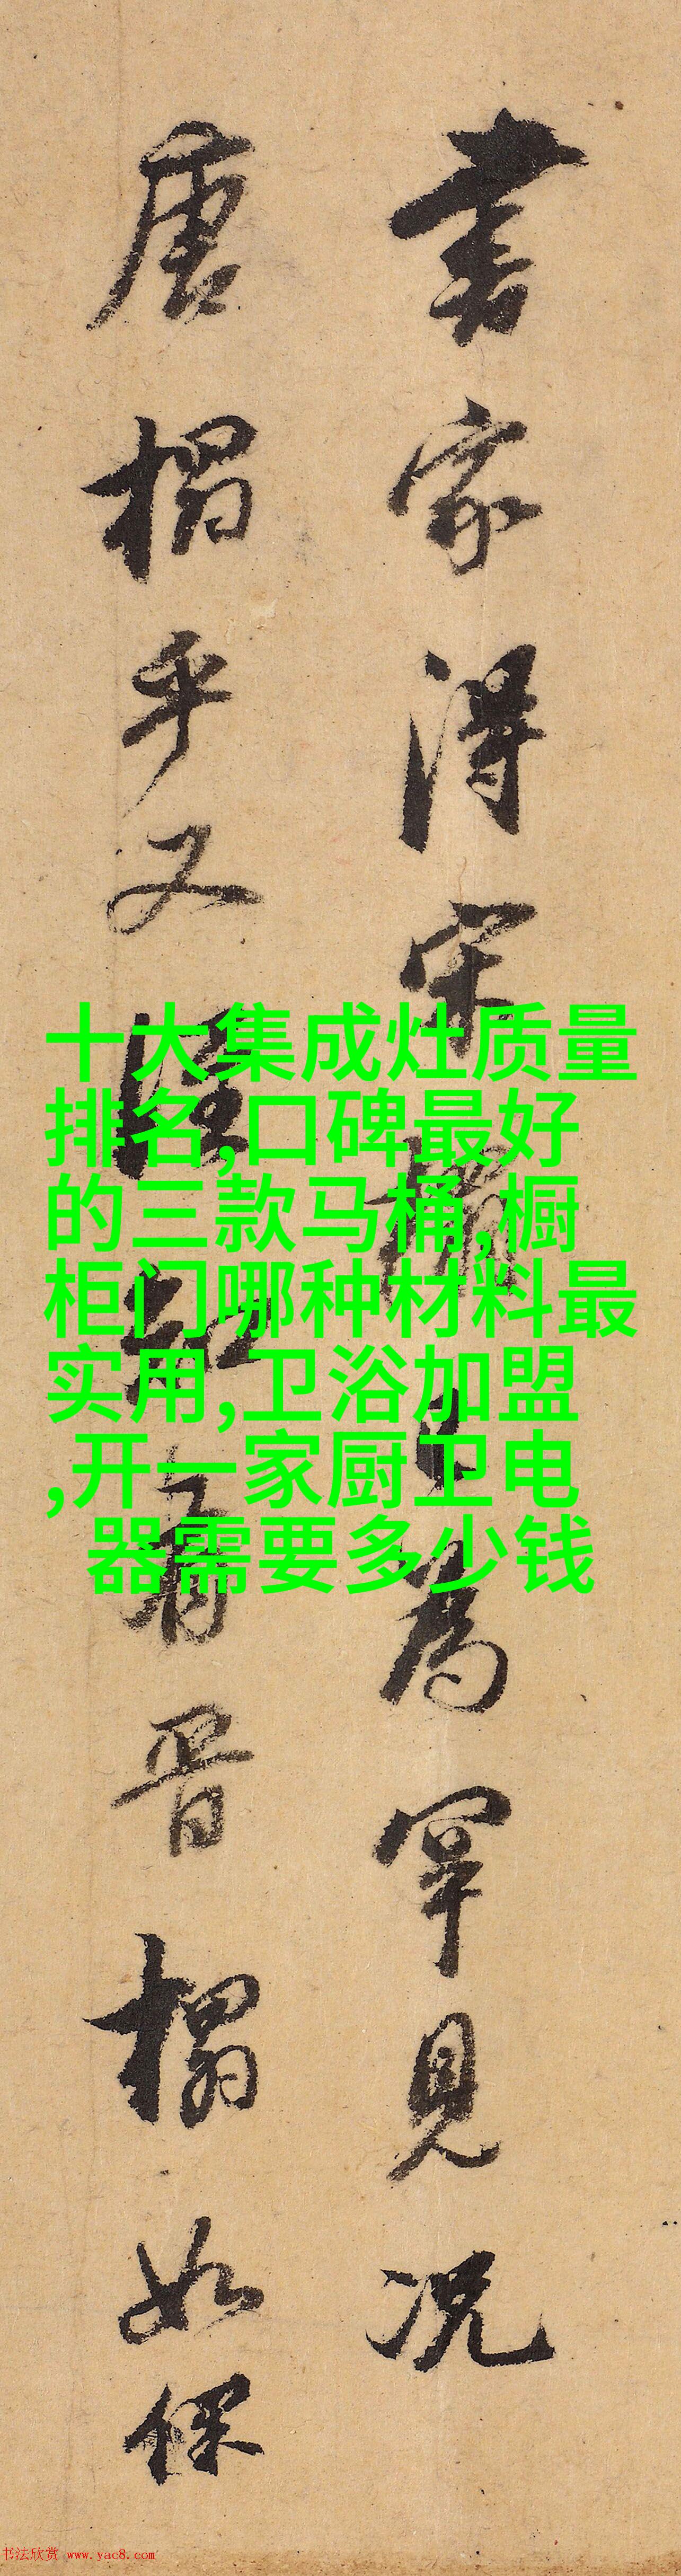 書家得宋榻已為罕見況
唐榻乎又況知有晉榻如保
十大集成灶质量
排名,口碑最好
的三款马桶,橱
柜门哪种材料最
实用,卫浴加盟
,开一家厨卫电
器需要多少钱
书法欣赏 www.yac8.com